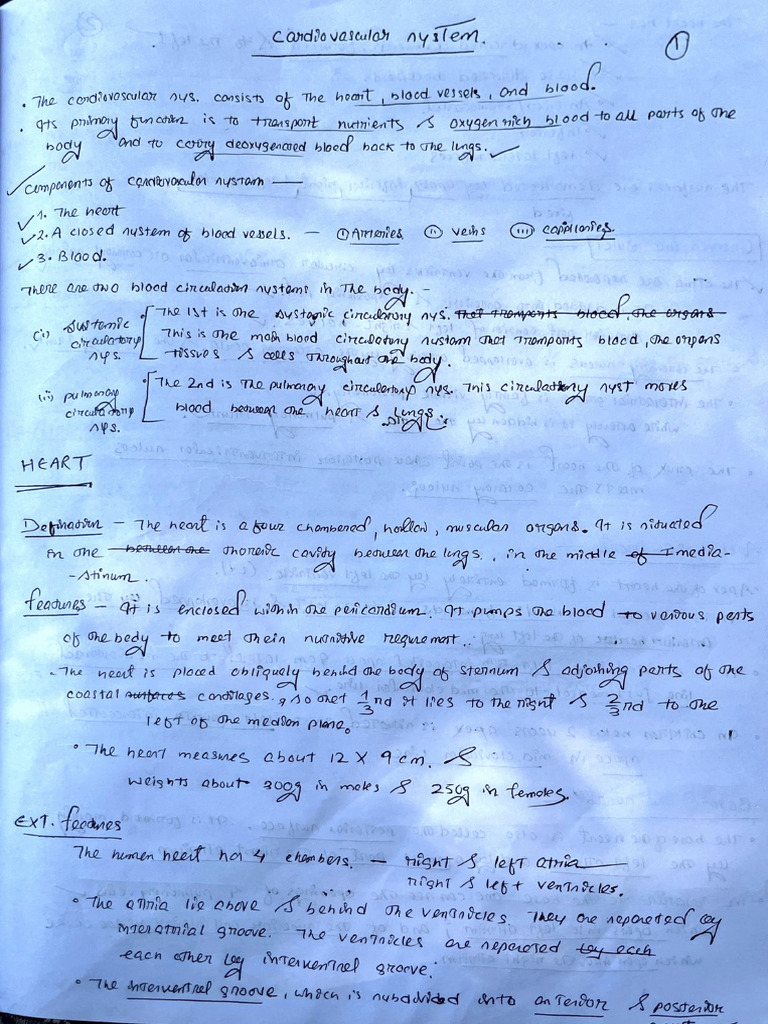 Cardiovascular system.
1
• The cardiovascular sys. consists of the heart, blood vessels, and blood.
• Its primary function is to transport nutrients & oxygen rich blood to all parts of the
body and to carry deoxygenated blood back to the lungs.
Components of cardiovascular system —
1. The heart
2. A closed system of blood vessels. — (i) Arteries (ii) veins (iii) capillaries
3. Blood.
There are two blood circulation systems in the body. -
(i) Systemic circulatory sys.
• The 1st is one systemic circulatory sys. that transports blood, the organs
This is the main blood circulatory system that transports blood, the organs
tissues & cells throughout the body.
(ii) pulmonary circulatory sys.
• The 2nd is the pulmonary circulatory sys. This circulatory syst moves
blood between the heart & lungs.
HEART
Defination – The heart is a four chambered, hollow, muscular organs. It is situated
in the between the thoracic cavity between the lungs, in the middle of I media-
-stinum.
features – It is enclosed within the pericardium. It pumps the blood to various parts
of the body to meet their nutritive requirment.
• The heart is placed obliquely behind the body of sternum & adjoining parts of the
coastal surfaces cartilages, so that 1/3nd it lies to the right & 2/3nd to the
left of the median plane.
• The heart measures about 12 x 9 cm. &
weights about 300g in males & 250g in females.
Ext. features
The human heart has 4 chambers. — right & left atria
right & left ventricles.
• The atria lie above & behind the ventricles They are separated by
interatrial groove. The ventricles are separated by each
each other by interventral groove.
• The interventral groove, which is subdivided into anterior & posterior